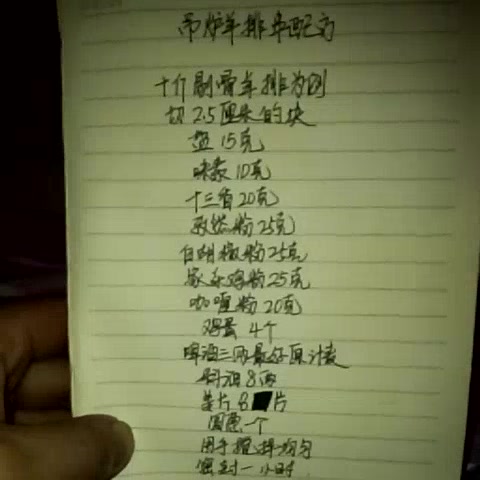 吊炉羊排串配方
十斤剔骨羊排为例
切2.5厘米的块
盐15克
味素10克
十三香20克
孜然粉25克
白胡椒粉25克
家乐鸡粉25克
咖喱粉20克
鸡蛋4个
啤酒三两最好原汁麦
料油8两
姜片8片
圆葱一个
用手抓拌均匀
密封一小时